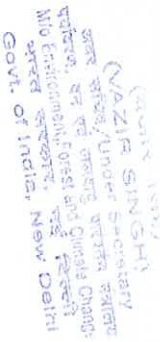 (VAZIR SINGH)
अवर सचिव/Under Secretary
पर्यावरण, वन एवं जलवायु परिवर्तन मंत्रालय
M/o Environment, Forest and Climate Change
भारत सरकार, नई दिल्ली
Govt. of India, New Delhi